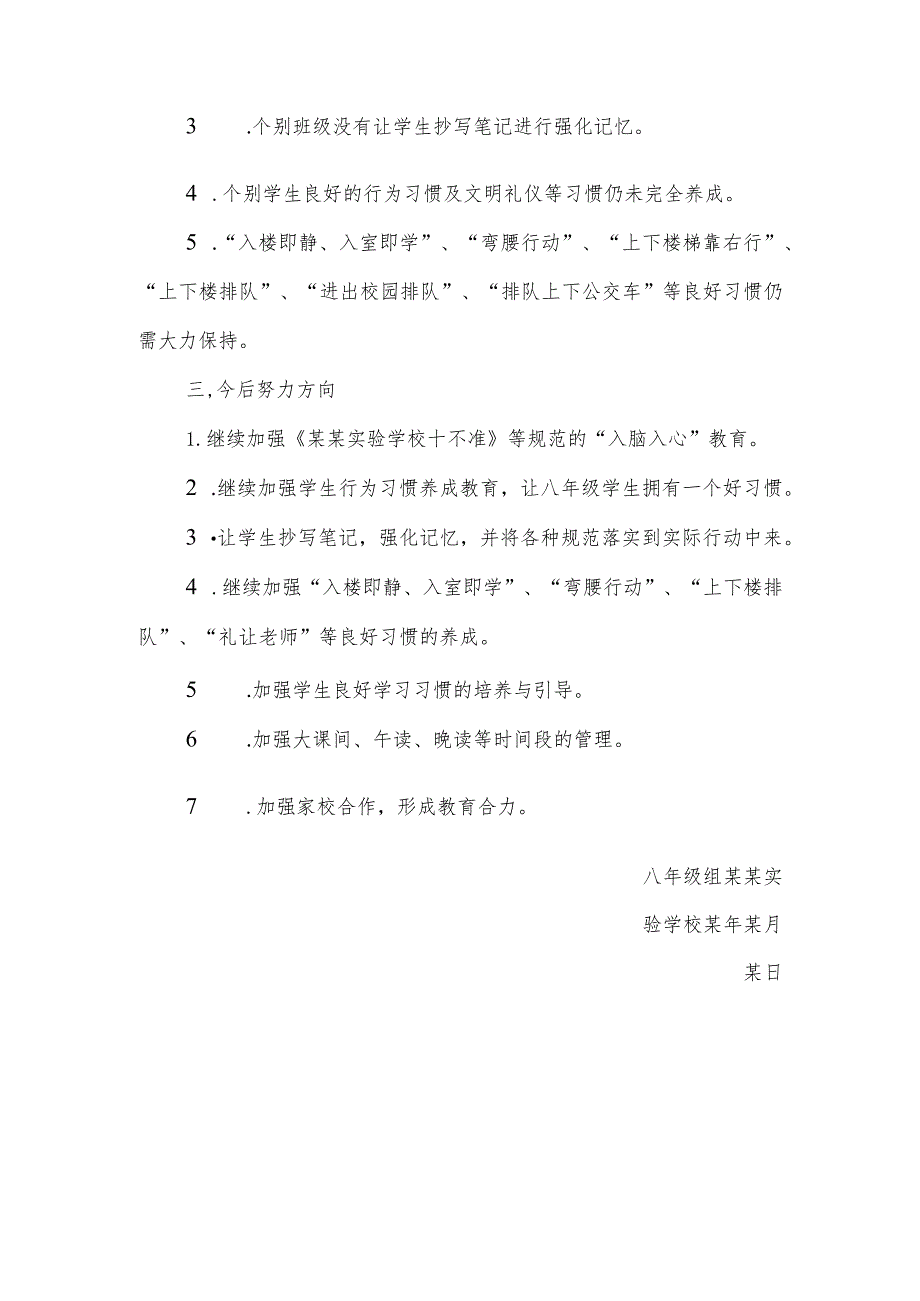 3 .个别班级没有让学生抄写笔记进行强化记忆。
4 .个别学生良好的行为习惯及文明礼仪等习惯仍未完全养成。
5 .“入楼即静、入室即学”、“弯腰行动”、“上下楼梯靠右行”、
“上下楼排队”、“进出校园排队”、“排队上下公交车”等良好习惯仍
需大力保持。
三,今后努力方向
1.继续加强《某某实验学校十不准》等规范的“入脑入心”教育。
2 .继续加强学生行为习惯养成教育，让八年级学生拥有一个好习惯。
3 •让学生抄写笔记，强化记忆，并将各种规范落实到实际行动中来。
4 .继续加强“入楼即静、入室即学”、“弯腰行动”、“上下楼排
队”、“礼让老师”等良好习惯的养成。
5 .加强学生良好学习习惯的培养与引导。
6 .加强大课间、午读、晚读等时间段的管理。
7 .加强家校合作，形成教育合力。
八年级组某某实
验学校某年某月
某日